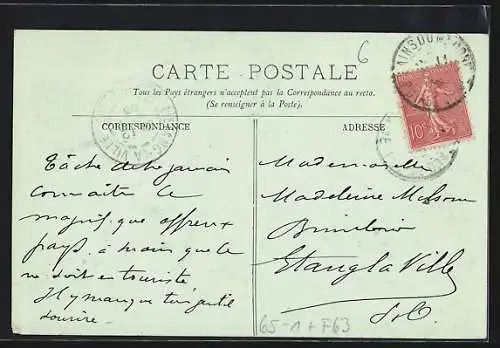 6
CARTE POSTALE
Tous les Pays étrangers n'acceptent pas la Correspondance au recto.
(Se renseigner à la Poste).
CORRESPONDANCE
ADRESSE
Tâche de ne jamais
connaître ce
magnif. que affreux
pays. à moins que ce
ne soit en touriste
Il y manque ton gentil
sourire.
Mademoiselle
Madeleine
Etang la Ville
S. & O.
10
65-1 + F63